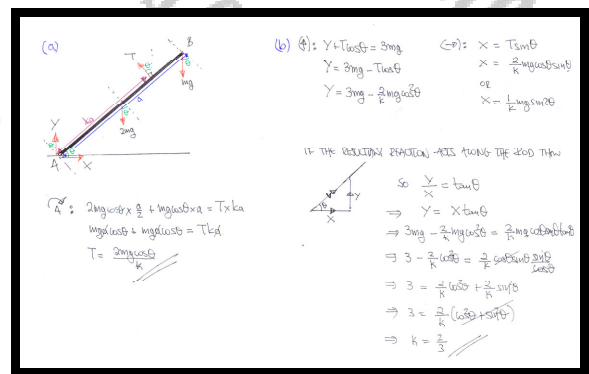 (a)
B
T
θ
mg
ka
a
θ
2mg
Y
A
X
A: 2mgcosθ × a/2 + mgcosθ × a = T × ka
mga cosθ + mga cosθ = Tka
T = 2mgcosθ/k
(b) (↑): Y + Tcosθ = 3mg
Y = 3mg - Tcosθ
Y = 3mg - 2/k mgcos²θ
(→): X = Tsinθ
X = 2/k mgcosθsinθ
OR
X = 1/k mgsin2θ
IF THE RESULTING REACTION ACTS ALONG THE ROD THEN
θ
Y
X
So Y/X = tanθ
⇒ Y = Xtanθ
⇒ 3mg - 2/k mgcos²θ = 2/k mgcosθsinθtanθ
⇒ 3 - 2/k cos²θ = 2/k cosθsinθ sinθ/cosθ
⇒ 3 = 2/k cos²θ + 2/k sin²θ
⇒ 3 = 2/k (cos²θ + sin²θ)
⇒ k = 2/3